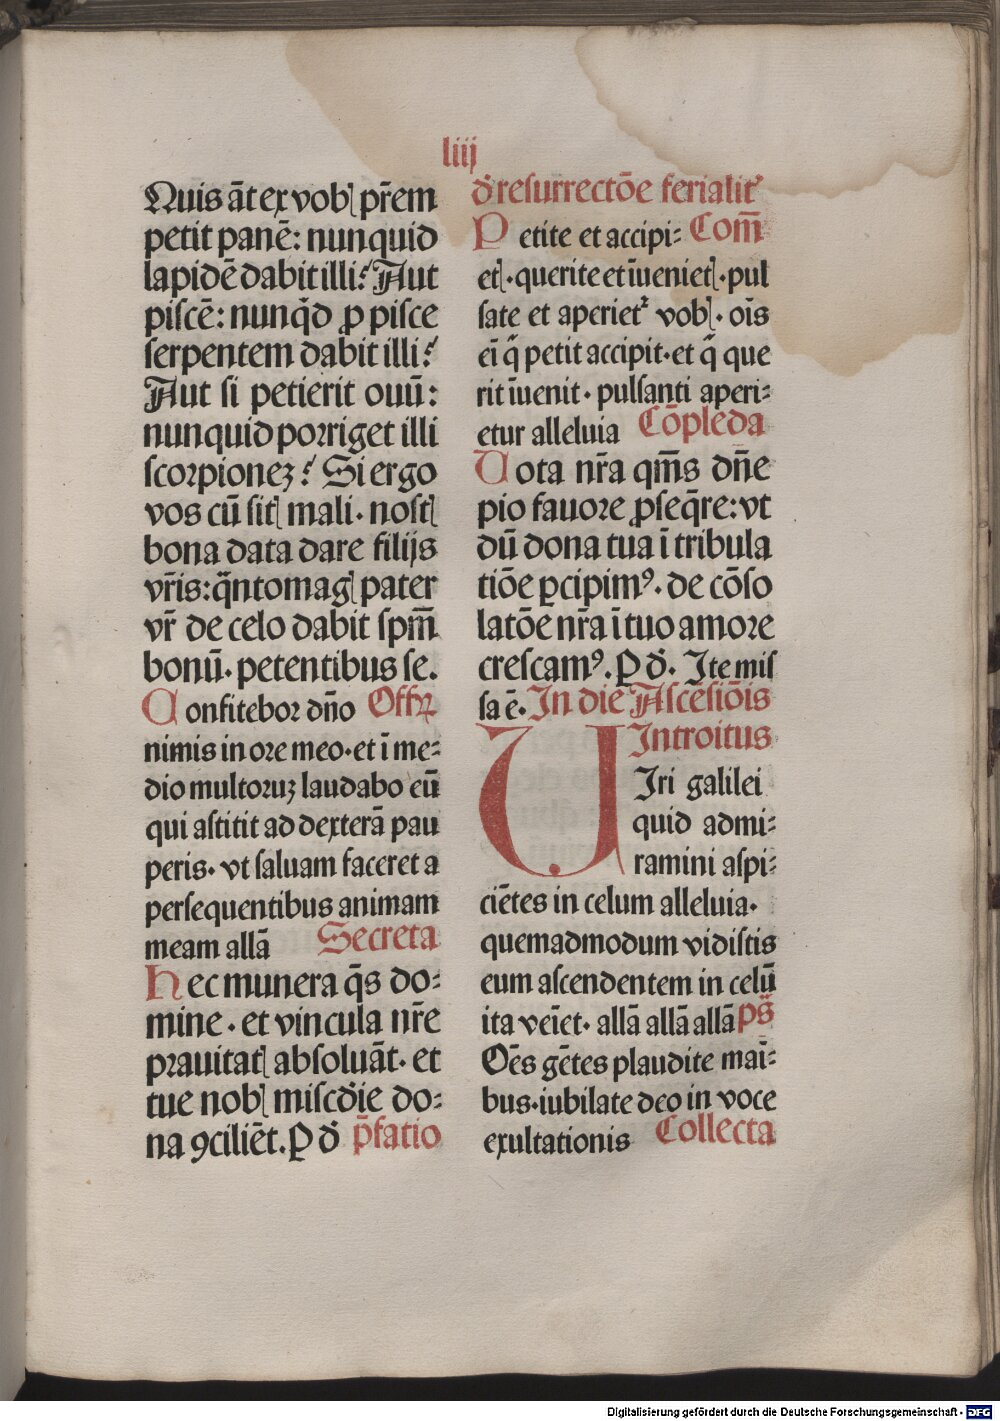 liiij
Quis āt ex vobꝭ pr̄em
petit panē: nunquid
lapidē dabit illi? Aut
piscē: nunq̄d ꝓ pisce
serpentem dabit illi?
Aut si petierit ouū:
nunquid porriget illi
scorpionez? Si ergo
vos cū sitꝭ mali. nostꝭ
bona data dare filijs
vr̄is: q̄nto magꝭ pater
vr̄ de celo dabit spm̄
bonū. petentibus se.
Confitebor dn̄o Offꝝ
nimis in ore meo. et ī me-
dio multoruz laudabo eū
qui astitit ad dexterā pau
peris. vt saluam faceret a
persequentibus animam
meam allā Secreta
Hec munera q̄s do-
mine. et vincula nr̄e
prauitatꝭ absoluāt. et
tue nobꝭ miscd̄ie do-
na ꝯciliēt. P d̄ p̄fatio
d̄ resurrectōe ferialit̄
Petite et accipi- Com̄
etꝭ. querite et īueniet̄ꝭ. pul
sate et aperietꝰ vobꝭ. oīs
eī q̄ petit accipit. et q̄ que
rit īuenit. pulsanti aperi-
etur alleluia Cōpleda
Uota nr̄a qm̄s dn̄e
pio fauore ꝓseq̄re: vt
dū dona tua ī tribula
tiōe ꝑcipimꝰ. de cōso
latōe nr̄a ī tuo amore
crescamꝰ. P d̄. Ite mis
sa ē. In die Ascēsiōis
Introitus
UIri galilei
quid admi-
ramini aspi-
ciētes in celum alleluia.
quemadmodum vidistis
eum ascendentem in celū
ita veīet. allā allā allā ps̄
Oēs gētes plaudite maī-
bus. iubilate deo in voce
exultationis Collecta
Digitalisierung gefördert durch die Deutsche Forschungsgemeinschaft - DFG